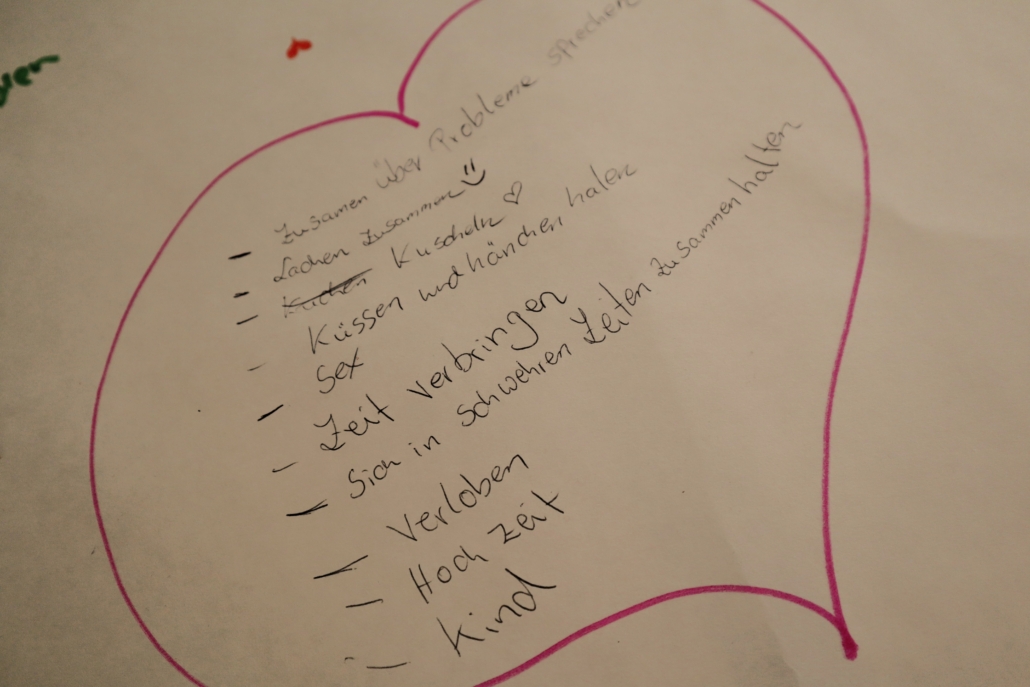 - Zusamen über Probleme sprechen
- Lachen zusammen
- Kuscheln ♡
- Küssen und hänchen halen
- Sex
- Zeit verbringen
- Sich in schwehren Zeiten zusammen halten
- Verloben
- Hoch zeit
- Kind